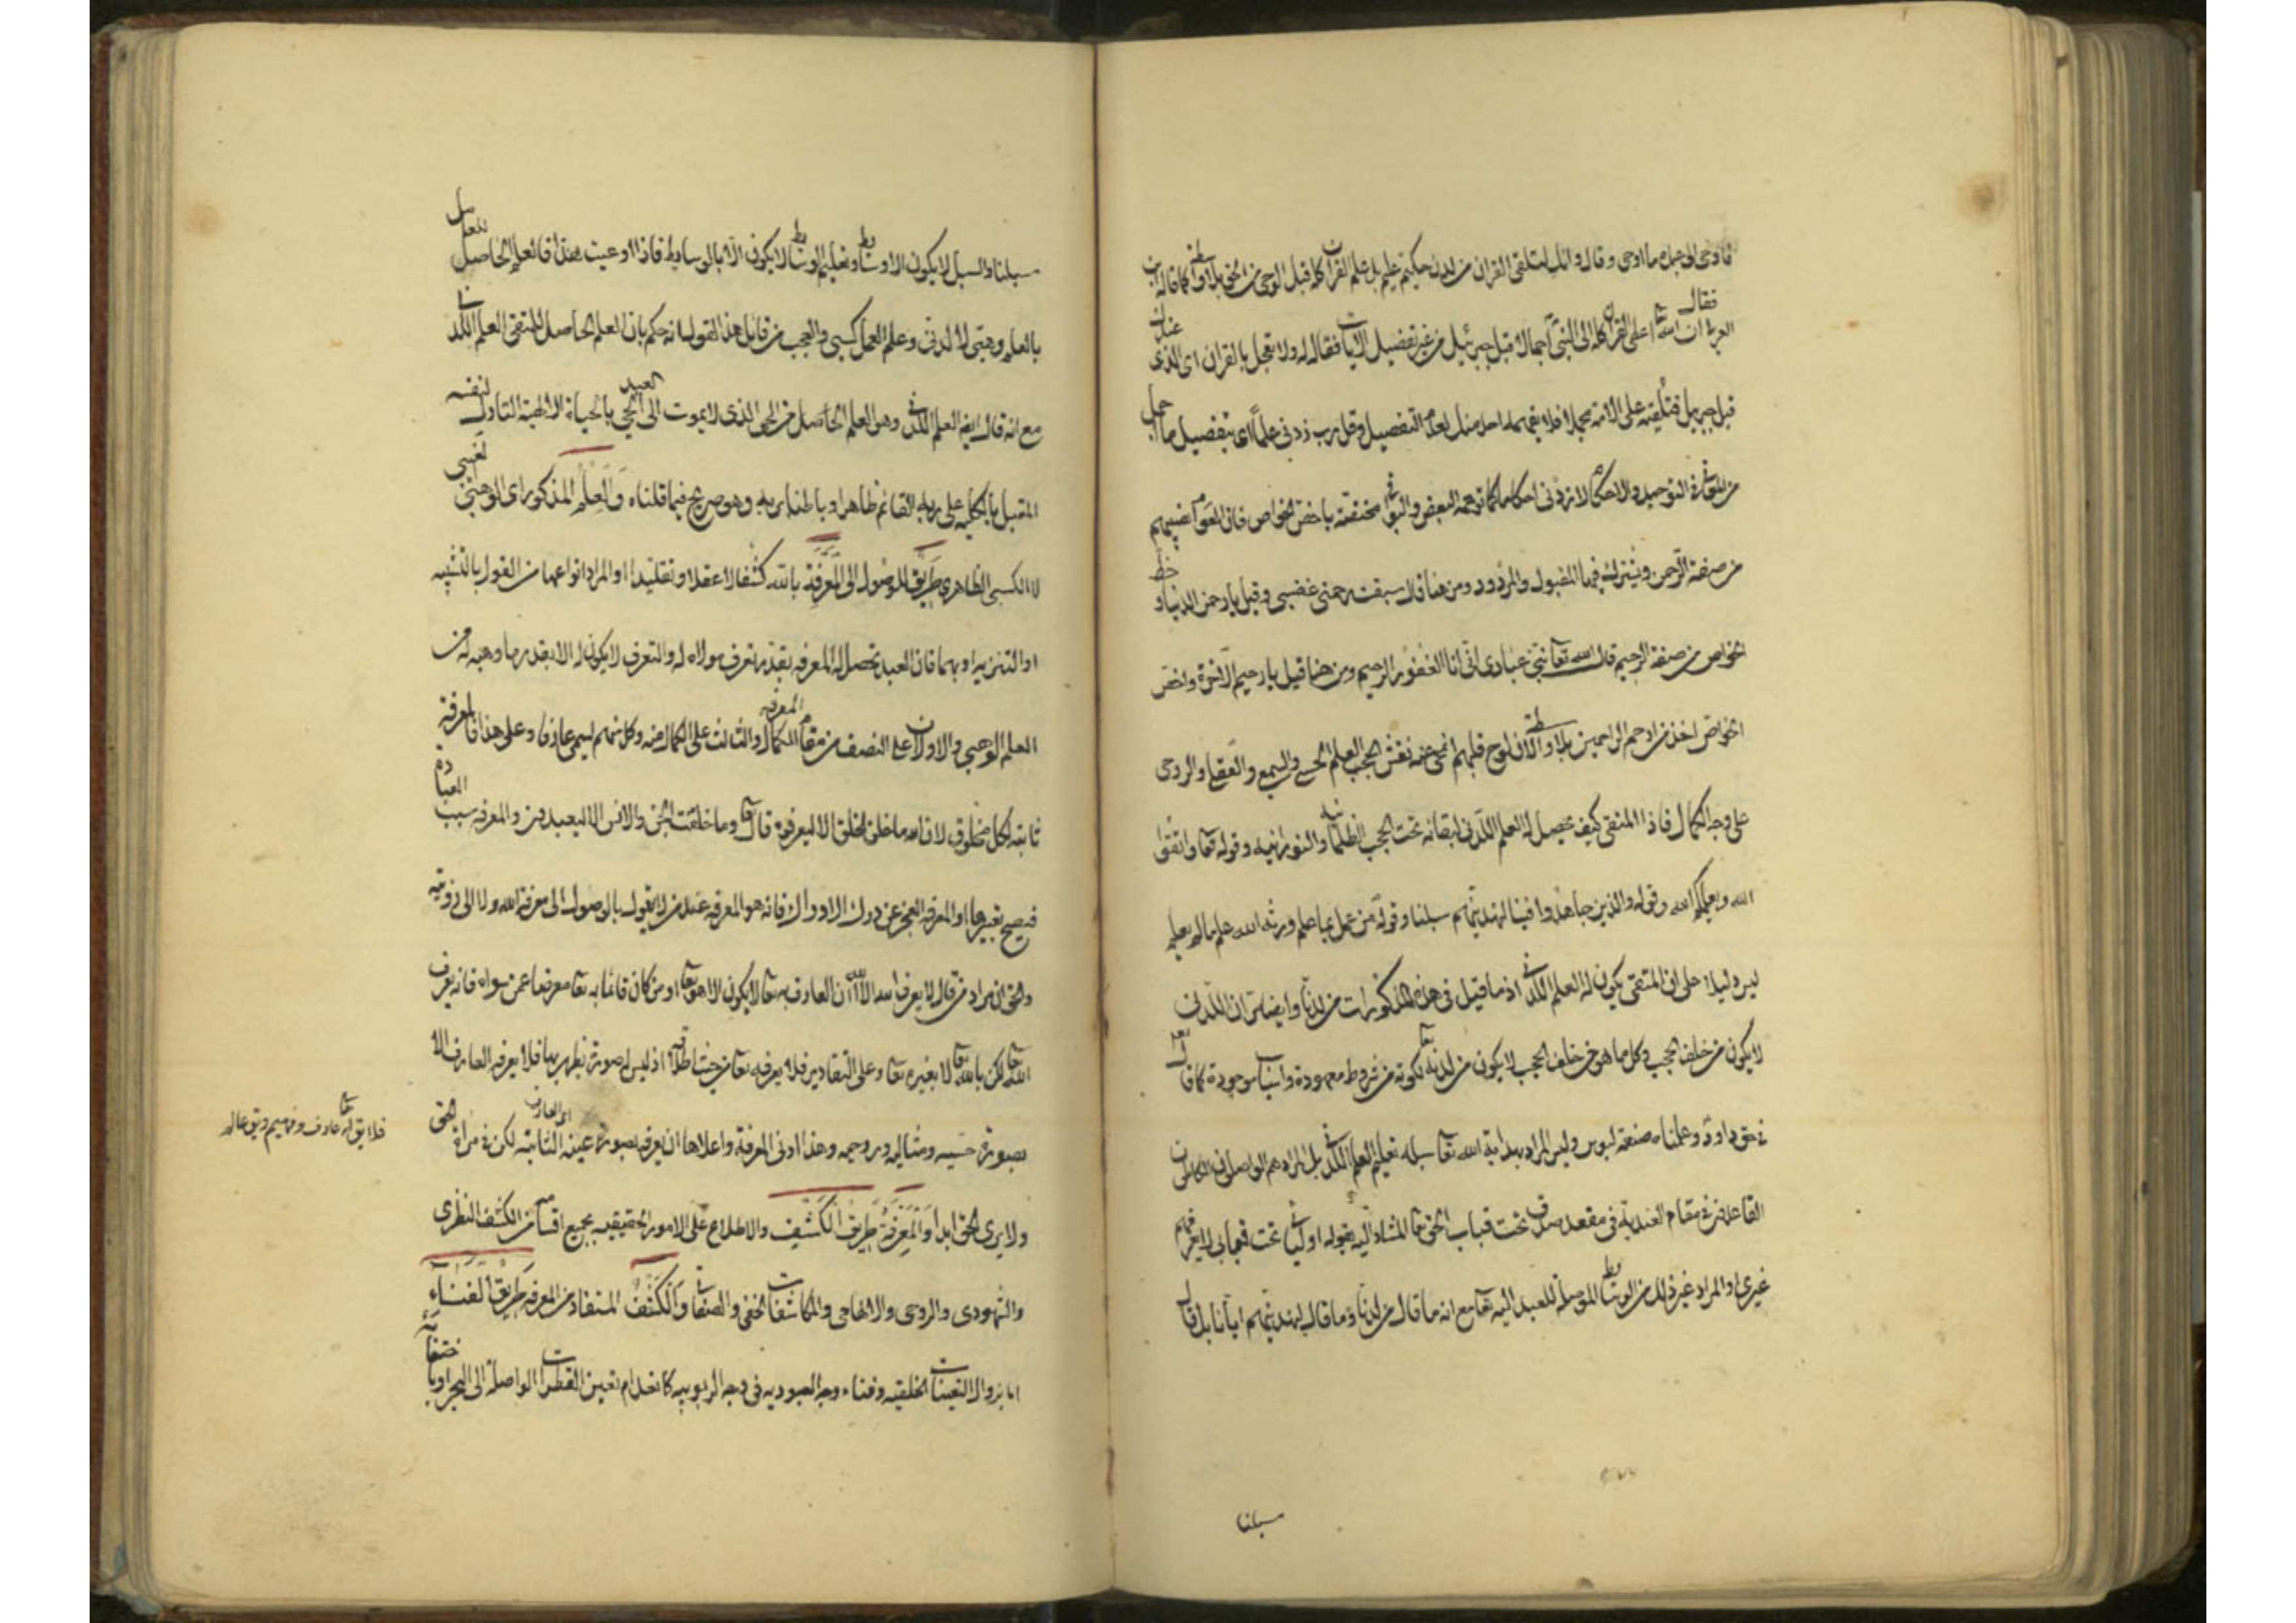 فاوحى الى عبده ما اوحى وقال وانك لتلقى القران من لدن حكيم عليم بل علم القران كله قبل الوحى من الحق بلا واسطه كما قاله ابن
العربى ان الله اعطى القران كله الى النبى اجمالا قبل جبرئيل من غير تفصيل الايات فقال له ولا تعجل بالقران اى الذى عندك فقال
قبل جبريل فتلقيه على الامة مجملا فلا يفهمه احد منك لعدم التفصيل وقل رب زدنى علما اى بتفصيل ما اجمل
من المعانى فى التوحيد والاحكام لا زدنى احكاما كما توهمه البعض مختصة باخص الخواص فان العوام نصيبهم
من صفة الرحمن ويشترك فيها المقبول والمردود ومن هنا قال سبقت رحمتى غضبى وقيل يا رحمن الدنيا وحظ
الخواص من صفة الرحيم قال الله تعا نبئ عبادى انى انا الغفور الرحيم ومن هنا قيل يا رحيم الاخرة واخص
الخواص اخذ من ارحم الراحمين بلا واسطة لان لوح قلبهم انمحى عنه نقش الحجب العلم الحسى والسمع والعقلى والروحى
على وجه الكمال فاذا المتقى كيف يحصل له العلم اللدنى لبقائه تحت الحجب الظلمانيه والنورانيه وقوله تعا واتقوا
الله ويعلمكم الله وقوله والذين جاهدوا فينا لنهدينهم سبلنا وقوله من عمل بما علم ورثه الله علم ما لم يعلم
ليس دليلا على ان المتقى يكون له العلم اللدنى اذ ما قيل فى هذه المذكورات من لدنا وايضا ان اللدنى
لا يكون من خلف الحجب وكل ما هو من خلف الحجب لا يكون من لدنه تعا لكونه من شروط معهودة واسباب موجودة كما قال تعا
فى حق داود وعلمناه صنعة لبوس وليس المراد بهداية الله تعا سبله تعليم العلم اللدنى بل المراد هم الواصلون الكاملون
القاعدون فى مقام العندية فى مقعد صدق تحت قباب الحق تعا المشار اليه بقوله اوليائى تحت قبابى لا يعرفهم
غيرى او المراد غير ذلك من الوسائط الموصلة للعبد اليه تعا مع انه ما قال من لدنا وما قال لنهدينهم ايانا بل قال
سبلنا
سبلنا والسبل لا يكون الا وسائط وتعليم الوسائط لا يكون الا بالوسايط فاذا ادعيت هذا فالعلم الحاصل للعمل
بالعلم وهبى لا لدنى وعلم العمل كسبى والعجب من قايل هذا القول انه حكم بان العلم الحاصل للمتقى العلم اللدنى
مع انه قال ايضا العلم اللدنى وهو العلم الحاصل من الحى الذى لا يموت الى العبد الحى بالحياة الالهية التارك لنفسه
المقبل بالكلية على ربه القائم ظاهرا وباطنا به وهو صريح فيما قلناه والعلم المذكور اى الوهبى
لا الكسبى الظاهرى طريق الوصول الى المعرفة بالله كشفا لا عقلا وتقليدا والمراد انواعها من القول بالتشبيه
او التنزيه او بهما فان العبد تحصل له المعرفه بقدر تعرف مولاه له والتعرف لا يكون له الا بقدر ما وهبه له من
العلم الوهبى والاولان على النصف من مقام الكمال المعرفه والثالث على الكمال منه وكل منهم يسمى عارفا وعلى هذا فالمعرفة
ثابتة لكل مخلوق لان الله ما خلق الخلق الا ليعرفوه قال تعا وما خلقت الجن والانس الا ليعبدون والمعرفه سبب العبادة
فيصح تفسيرها او المعرفه العجز عن درك الادراك فانه هو المعرفه عند من لا يقول بالوصول الى معرفة الله ولا الى رؤيته
والحق ان مراد من قال لا يعرف الله الا الله ان العارف به تعا لا يكون الا هو تعا او من كان قائما به تعا معرضا عن سواه فانه يعرف
الله تعا لكن بالله تعا لا بغيره تعا وعلى التقادير فلا يعرفه تعا من حيث اطلاقه اذ ليس له صورة يظهر بها فلا يعرفه العارف الا
فلا يق له تعا عارف وفهيم ويق عالم
بصورة حسيه ومثاليه وروحيه وهذا ادنى المعرفة واعلاها ان يعرفه بصورة عينه الثابتة اى العارف لكن فى مراة الحق
ولا يرى الحق ابدا والمعرفة طريق الكشف والاطلاع على الامور الحقيقيه بجميع اقسامه من الكشف النظرى
والشهودى والروحى والالهامى والمكاشفات الخفى والصفاتى والكشف المستفاد من المعرفه طريق الفناء
اما بزوال التعينات الخلقيه وفناء وجه العبوديه فى وجه الربوبيه كانعدام تعين القطرات الواصلة الى البحر او باختفائه